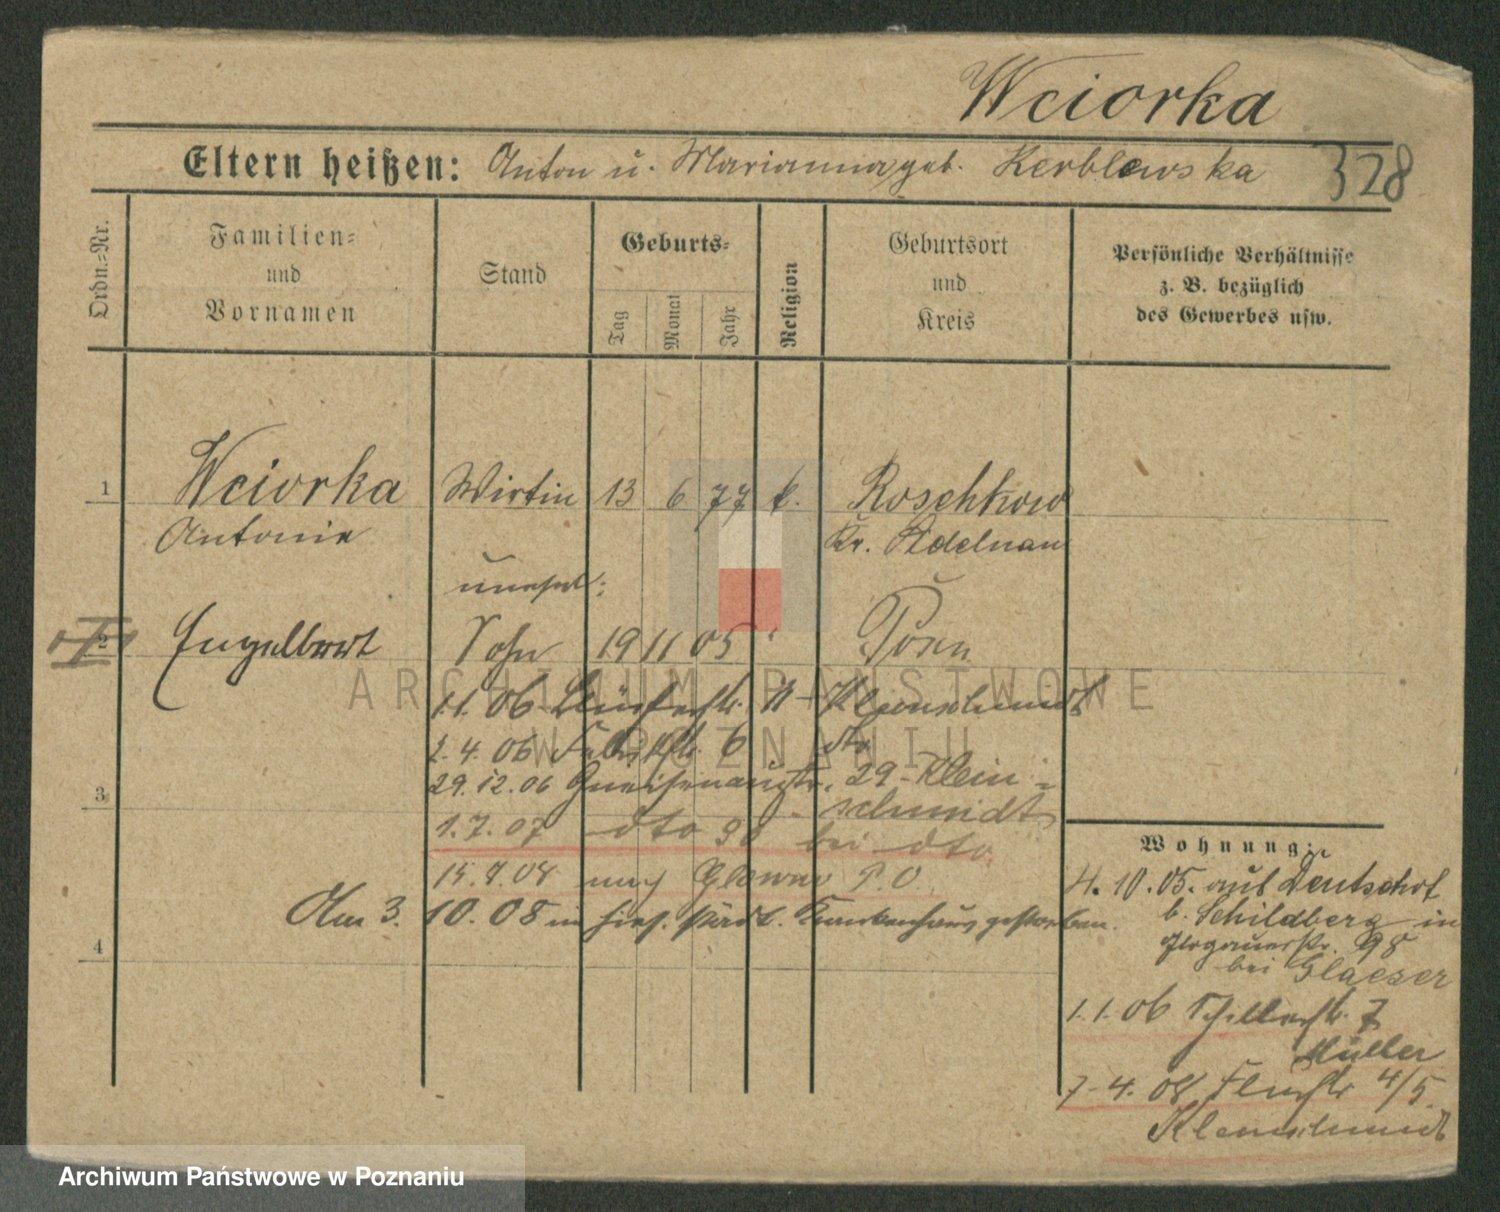 Wciorka
Eltern heißen: Anton u. Marianna geb. Kerblewska
328
Ordn.-Nr.
Familien-
und
Vornamen
Stand
Geburts-
Tag
Monat
Jahr
Religion
Geburtsort
und
Kreis
Persönliche Verhältnisse
z. B. bezüglich
des Gewerbes usw.
1 Wciorka Wirtin 13 6 77 k. Roschkow
Antonie Kr. Adelnau
unehel:
2 Engelbert Sohn 19 11 05 Posen
1.1.06 11 Kleinschmidt
2.4.06 6 dto
29.12.06 Gneisenaustr. 29 - Klein-
3 schmidt
1.7.07 dto bei dto
15.7.08 nach Glowno P.O.
Am 3. 10.08 im hies. städt. Krankenhaus gestorben.
4
Wohnung:
4.10.05. aus Deutschof
b. Schildberg in
Glogauerstr. 98
bei Glaeser
1.1.06 Schillerstr. 7
Müller
7.4.08 4/5
Kleinschmidt
ARCHIWUM PAŃSTWOWE
W POZNANIU
Archiwum Państwowe w Poznaniu